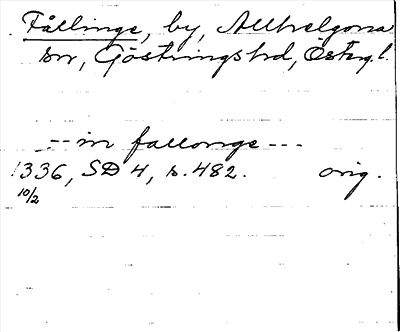 Fållinge, by, Allhelgona
sn, Göstringshd, Östg.l.
-- in fallonge ---
1336, SD 4, s. 482. orig.
10/2